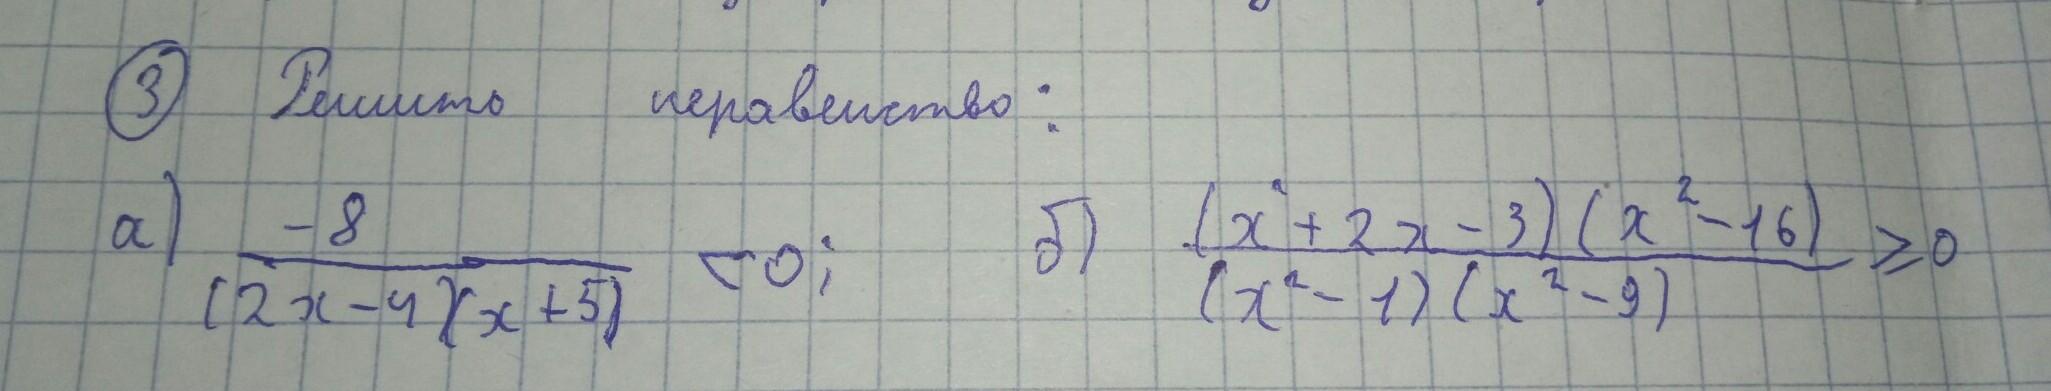 ③ Решить неравенство:
а) -8 / (2x-4)(x+5) <0; б) (x²+2x-3)(x²-16) / (x²-1)(x²-9) ≥0